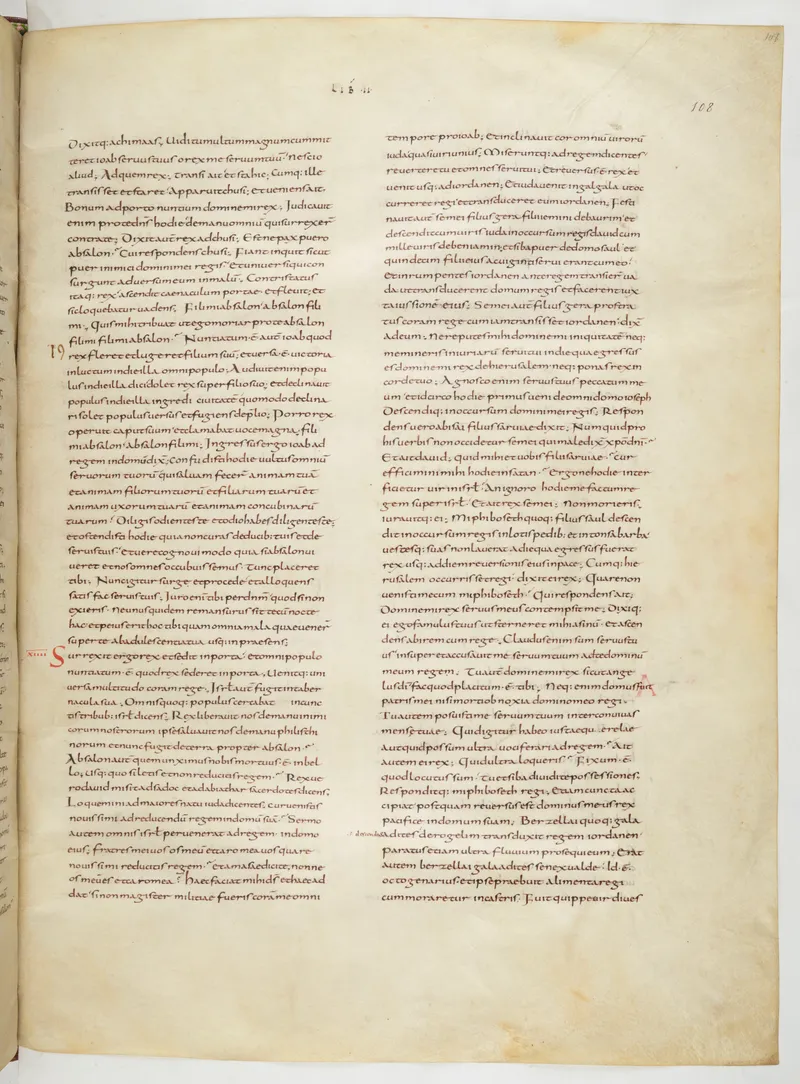 LIB II
108
Dixitq: achimaas, Uidi tumultum magnum cum mit
teret ioab seruus tuus o rex me seruum tuū; Nescio
aliud; Ad quem rex, transi ait et sta hic; Cumq: ille
transisset et staret, Apparuit chusi, et ueniens ait,
Bonum adporto nuntium domine mi rex, Iudicauit
enim pro te dn̄s hodie de manu omniū qui surrexer̄
contra te; Dixit aut̄ rex ad chusi, Est ne pax puero
absalon; Cui respondens chusi, Fiant inquit sicut
puer inimici domini mei regis, et uniuersi qui con
surgunt aduersum eum in malū, Contristatus
itaq: rex ascendit caenaculum portae et fleuit, et
sic loquebatur uadens, Fili mi absalon absalon fili
mi, Quis mihi tribuat ut ego moriar pro te absalon
fili mi fili mi absalon; Nuntiatum ē aut̄ ioab quod
19
rex fleret et lugeret filium suū, et uersa ē uictoria
in luctum in die illa omni populo; Audiuit enim popu
lus in die illa dici dolet rex super filio suo; et declinauit
populus in die illa ingredi ciuitatē quomodo declina
ri solet populus uersus et fugiens de p̄lio; Porro rex
operuit caput suum et clamabat uoce magna, fili
mi absalon absalon fili mi; Ingressus ergo ioab ad
regem in domū dix̄; Confudisti hodie uultus omniū
seruorum tuorū qui saluam fecer̄ animam tuā
et animam filiorum tuorū et filiarum tuarū et
animam uxorum tuarū et animam concubinarū
tuarum; Diligis odientes te et odio habes diligentes te;
et ostendisti hodie quia non curas de ducib: tuis et de
seruis tuis; et uere cognoui modo quia si absalon ui
ueret et nos omnes occubuissemus tunc placeret
tibi; Nunc igitur surge et procede et alloquens
satisfac seruis tuis, Iuro enī tibi per dnm̄ quod si non
exieris Ne unus quidem remansurus sit tecū nocte
hac et peius erit hoc tibi quam omnia mala quae uener̄
super te ab adulescentia tua usq: in praesens;
XIIII Surrexit ergo rex et sedit in porta, et omni populo
nuntiatum ē quod rex sederet in porta, Uenitq: uni
uersa multitudo coram rege, Isrl̄ aut̄ fugit in taber
nacula sua, Omnisq: populus certabat in cunc
tis tribub: isrl̄ dicens, Rex liberauit nos de manu inimi
corum nostrorum ipse saluauit nos de manu philisthi
norum et nunc fugit de terra propter absalon;
Absalon aut̄ quem unximus nobis mortuus ē in bel
lo; Usq: quo siletis et non reducitis regem; Rex ue
ro dauid misit ad sadoc et ad abiathar sacerdotes dicens,
Loquemini ad maiores natu iuda dicentes, cur uenistis
nouissimi ad reducendū regem in domū suā; Sermo
autem omnis isrl̄ peruenerat ad regem in domo
eius, fratres mei uos os meū et caro mea uos quare
nouissimi reducitis regem; et amasae dicite; nonne
os meū es et caro mea; Haec faciat mihi ds̄ et haec ad
dat si non magister militiae fueris corā me omni
tempore pro ioab; Et inclinauit cor omniū uirorū
iuda quasi uiri unius; Miseruntq: ad regem dicentes
reuertere tu et omnes serui tui; Et reuersus ē rex et
uenit usq: ad iordanen; Et iuda uenit in galgala ut oc
curreret regi et transduceret eum iordanen, Festi
nauit aut̄ semei filius gera filii iemini de baurim et
descendit cum uiris iuda in occursum regis dauid cum
mille uiris de beniamin; et siba puer de domo saul et
quindecim filii eius ac uiginti serui erant cum eo
Et inrumpentes iordanen ante regem transier̄ ua
da ut transducerent domum regis et facerent iux
ta iussionē eius; Semei aut̄ filius gera prostra
tus coram rege cum iam transisset iordanen dix̄
Ad eum, Ne reputes mihi domine mi iniquitatē neq:
memineris iniuriarū serui tui in die qua egressus
es domine mi rex de hierusalem neq: ponas rex in
corde tuo; Agnosco enim seruus tuus peccatum me
um et idcirco hodie primus ueni de omni domo ioseph
Descendiq: in occursum domini mei regis; Respon
dens uero abisai filius saruiae dixit; Numquid pro
his uerbis non occidetur semei qui maledix̄ xp̄o dn̄i;
Et ait dauid, quid mihi et uobis filii saruiae; Cur
efficimini mihi hodie in satan; Ergone hodie inter
ficietur uir in isrl̄ An ignoro hodie me factum re
gem super isrl̄; Et ait rex semei, Non morieris,
iurauitq: ei; Miphiboseth quoq: filius saul descen
dit in occursum regis inlotis pedib: et intonsa barba
uestesq: suas non lauerat a die qua egressus fuerat
rex usq: ad diem reuersionis eius in pace; Cumq: hie
rusalem occurrisset regi dixit ei rex; Quare non
uenisti mecum miphiboseth; Qui respondens ait;
Domine mi rex seruus meus contempsit me; Dixiq:
ei ego famulus tuus ut sterneret mihi asinū et ascen
dens abirem cum rege, Claudus enim sum seruus tu
us insuper et accusauit me seruum tuum ad te dominū
meum regem; Tu aut̄ domine mi rex sicut ange
lus di̅ fac quod placitum ē tibi, Neq: enim domus fuit
patris mei nisi morti obnoxia domino meo regi,
Tu autem posuisti me seruum tuum inter conuiuas
mensae tuae; Quid igitur habeo iustae querelae
Aut quid possum ultra uociferari ad regem; Ait
autem ei rex; Quid ultra loqueris; Fixum ē
quod locutus sum; Tu et siba diuidite possessiones,
Responditq: miphiboseth regi, Etiam cuncta ac
cipiat postquam reuersus est dominus meus rex
pacifice in domum suam; Berzellai quoq: gala
adites de rogelim transduxit regem iordanen
paratus etiam ultra fluuium prosequi eum; Erat
autem berzellai galaadites senex ualde id ē
octogenarius et ipse praebuit alimenta regi
cum moraretur in castris; Fuit quippe uir diues